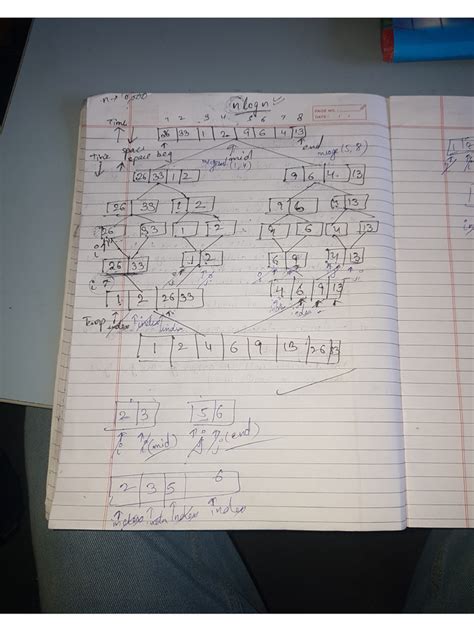 nlogn
PAGE NO.
DATE:
1 2 3 4 5 6 7 8
Time
26 33 1 2 9 6 4 13
space
Time space beg mid end
merge(5, 8)
26 33 1 2 9 6 4 13
26 33 1 2 9 6 4 13
26 33 1 2 9 6 4 13
26 33 1 2 6 9 4 13
1 2 26 33 4 6 9 13
Temp index index index
1 2 4 6 9 13 26 33
2 3 5 6
i (mid) j (end)
2 3 5 6
index index index index